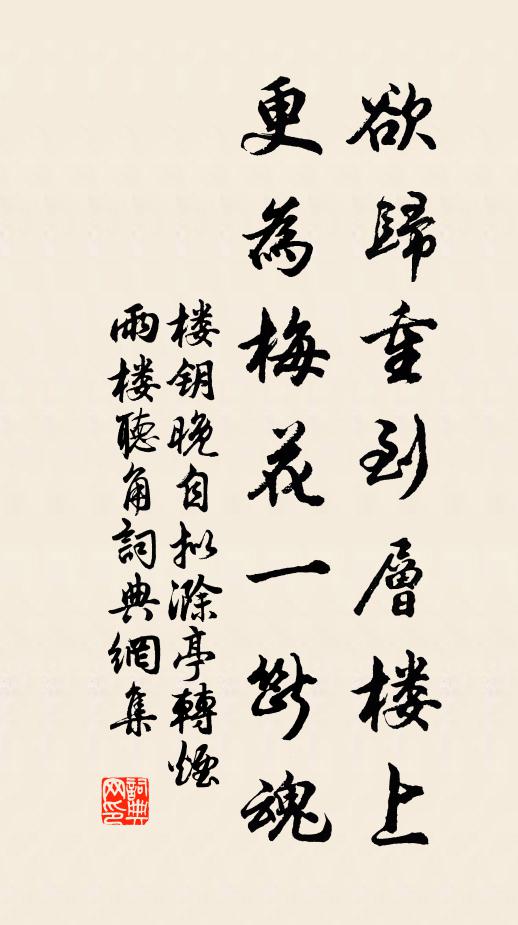 欲歸重到層楼上
更為梅花一断魂
楼钥晚自拟滁亭轉煙
雨楼聽角詞典網集
詞典
网印